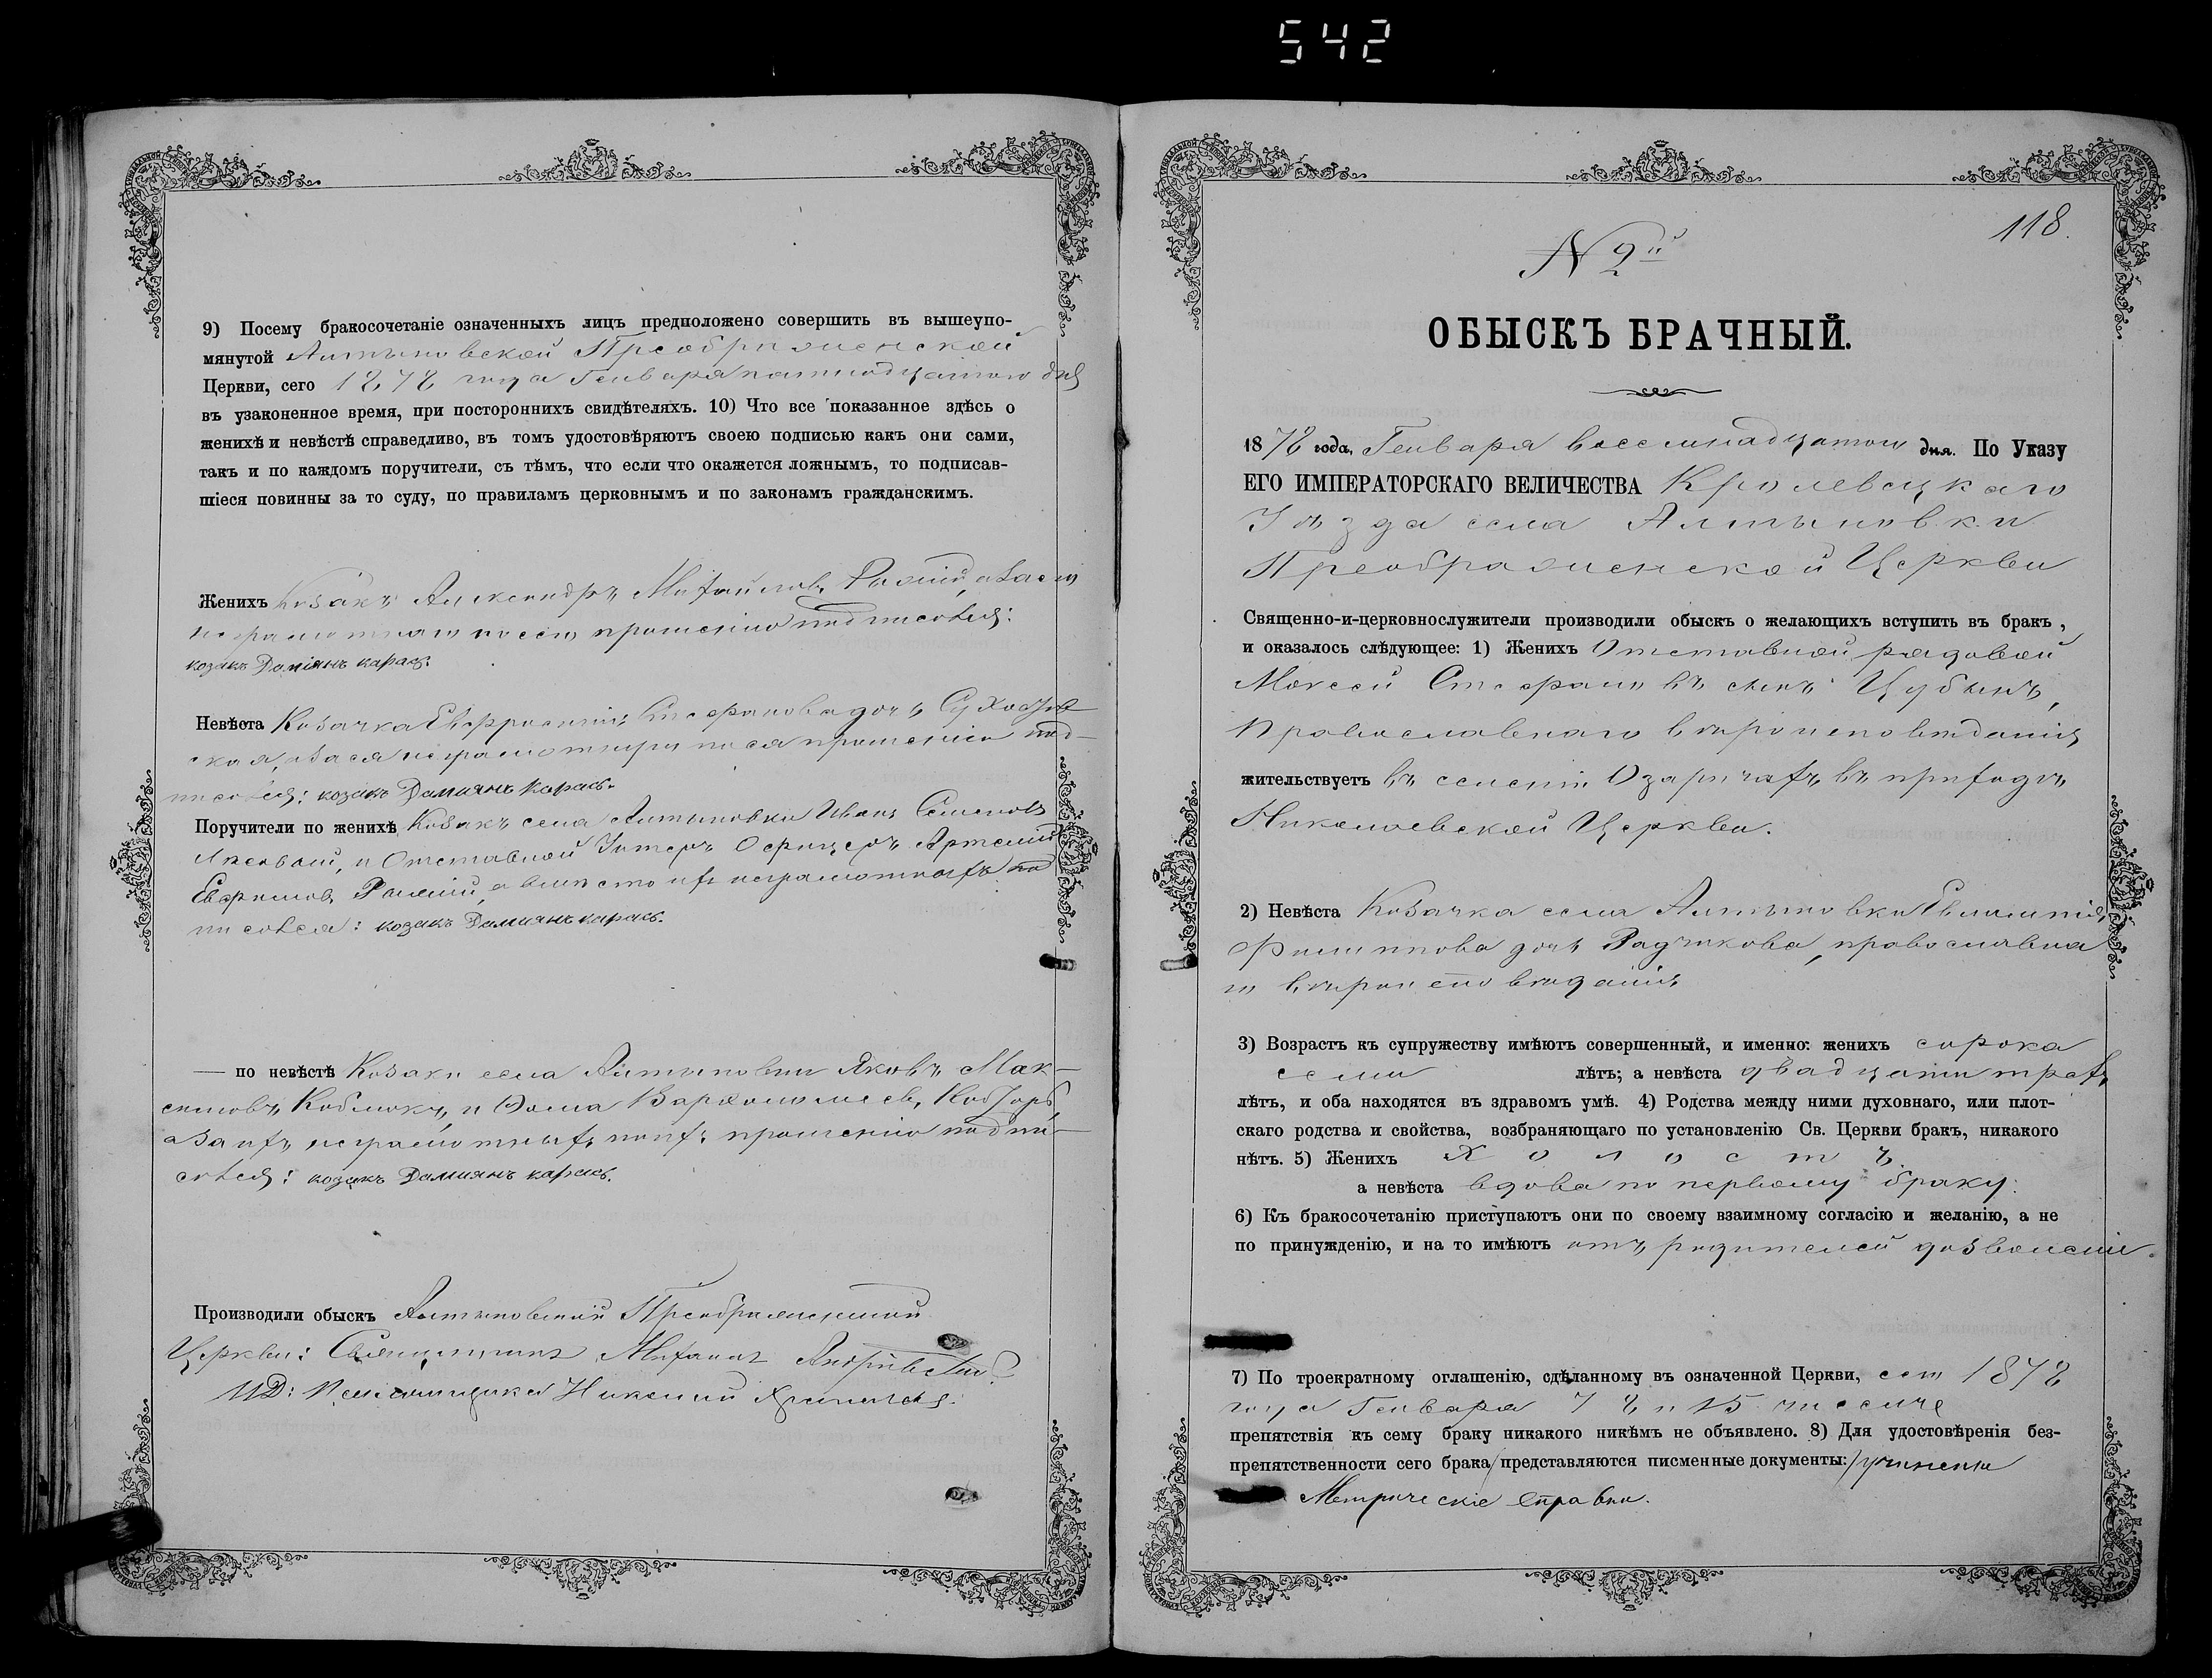 542
9) Посему бракосочетаніе означенныхъ лицъ предположено совершить въ вышеупо-
мянутой Алтыновской Преображенской
Церкви, сего 1878 года Генваря пятнадцатаго дня
въ узаконенное время, при постороннихъ свидѣтеляхъ. 10) Что все показанное здѣсь о
женихѣ и невѣстѣ справедливо, въ томъ удостовѣряютъ своею подписью какъ они сами,
такъ и по каждомъ поручители, съ тѣмъ, что если что окажется ложнымъ, то подписав-
шіеся повинны за то суду, по правиламъ церковнымъ и по законамъ гражданскимъ.
Женихъ Козакъ Александръ Михайловъ
неграмотнаго по его прошенію подписался:
козакъ Даміянъ карась.
Невѣста Козачка Евфросинія Стефанова дочь
ская, а за ся неграмотную по ся прошенію под-
писался: козакъ Дамиянъ Карась.
Поручители по женихѣ Козакъ села Алтыновки Иванъ Семеновъ
и Отставной Унтеръ Офицеръ Артемій
Евфимовъ а вмѣсто ихъ неграмотныхъ под
писался: козакъ Дамиянъ карась.
— по невѣстѣ Козаки села Алтыновки Яковъ Мак-
симовъ и Фома Варфоломеевъ
а за ихъ неграмотныхъ по ихъ прошенію подпи-
сался: козакъ Дамиянъ карась.
Производили обыскъ Алтыновской Преображенской
Церкви: Священникъ Михаилъ
ИД: Псаломщика Николай
118.
N 2й
ОБЫСКЪ БРАЧНЫЙ.
1878 года, Генваря восемнадцатого дня. По Указу
ЕГО ИМПЕРАТОРСКАГО ВЕЛИЧЕСТВА Кролевецкаго
Уѣзда села Алтыновки
Преображенской Церкви
Священно-и-церковнослужители производили обыскъ о желающихъ вступить въ бракъ,
и оказалось слѣдующее: 1) Женихъ Отставной рядовой
Моѵсей Стефановъ сынъ Цубынъ,
Православнаго вѣроисповѣданія
жительствуетъ въ селеніи Озаричахъ въ приходѣ
Николаевской Церкви.
2) Невѣста Козачка села Алтыновки Евлампія
Филиппова дочь Радчикова, православна
го вѣроисповѣданія
3) Возрастъ къ супружеству имѣютъ совершенный, и именно: женихъ сорока
семи лѣтъ; а невѣста двадцати трехъ
лѣтъ, и оба находятся въ здравомъ умѣ. 4) Родства между ними духовнаго, или плот-
скаго родства и свойства, возбраняющаго по установленію Св. Церкви бракъ, никакого
нѣтъ. 5) Женихъ Холостъ
а невѣста вдова по первому браку.
6) Къ бракосочетанію приступаютъ они по своему взаимному согласію и желанію, а не
по принужденію, и на то имѣютъ отъ родителей дозволеніе.
7) По троекратному оглашенію, сдѣланному въ означенной Церкви, сего 1878
года Генваря 7 8 и 15 числѣ
препятствія къ сему браку никакого никѣмъ не объявлено. 8) Для удостовѣренія без-
препятственности сего брака представляются писменные документы: учинены
Метрическіе справки.